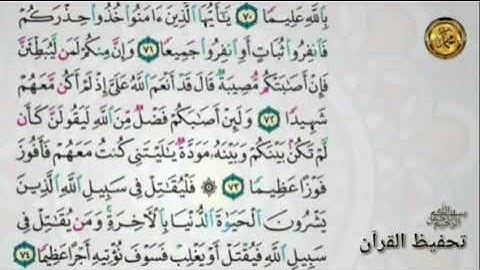 بِٱللَّهِ عَلِيمًا ٧٠ يَٰٓأَيُّهَا ٱلَّذِينَ ءَامَنُوا۟ خُذُوا۟ حِذْرَكُمْ
فَٱنفِرُوا۟ ثُبَاتٍ أَوِ ٱنفِرُوا۟ جَمِيعًا ٧١ وَإِنَّ مِنكُمْ لَمَن لَّيُبَطِّئَنَّ
فَإِنْ أَصَٰبَتْكُم مُّصِيبَةٌ قَالَ قَدْ أَنْعَمَ ٱللَّهُ عَلَىَّ إِذْ لَمْ أَكُن مَّعَهُمْ
شَهِيدًا ٧٢ وَلَئِنْ أَصَٰبَكُمْ فَضْلٌ مِّنَ ٱللَّهِ لَيَقُولَنَّ كَأَن
لَّمْ تَكُنۢ بَيْنَكُمْ وَبَيْنَهُۥ مَوَدَّةٌ يَٰلَيْتَنِى كُنتُ مَعَهُمْ فَأَفُوزَ
فَوْزًا عَظِيمًا ٧٣ ۞ فَلْيُقَٰتِلْ فِى سَبِيلِ ٱللَّهِ ٱلَّذِينَ
يَشْرُونَ ٱلْحَيَوٰةَ ٱلدُّنْيَا بِٱلْءَاخِرَةِ وَمَن يُقَٰتِلْ فِى
سَبِيلِ ٱللَّهِ فَيُقْتَلْ أَوْ يَغْلِبْ فَسَوْفَ نُؤْتِيهِ أَجْرًا عَظِيمًا ٧٤
تحفيظ القرآن